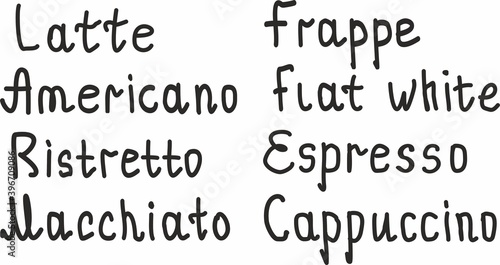 Latte
Americano
Ristretto
Macchiato
Frappe
flat white
Espresso
Cappuccino
Adobe Stock | #396709086